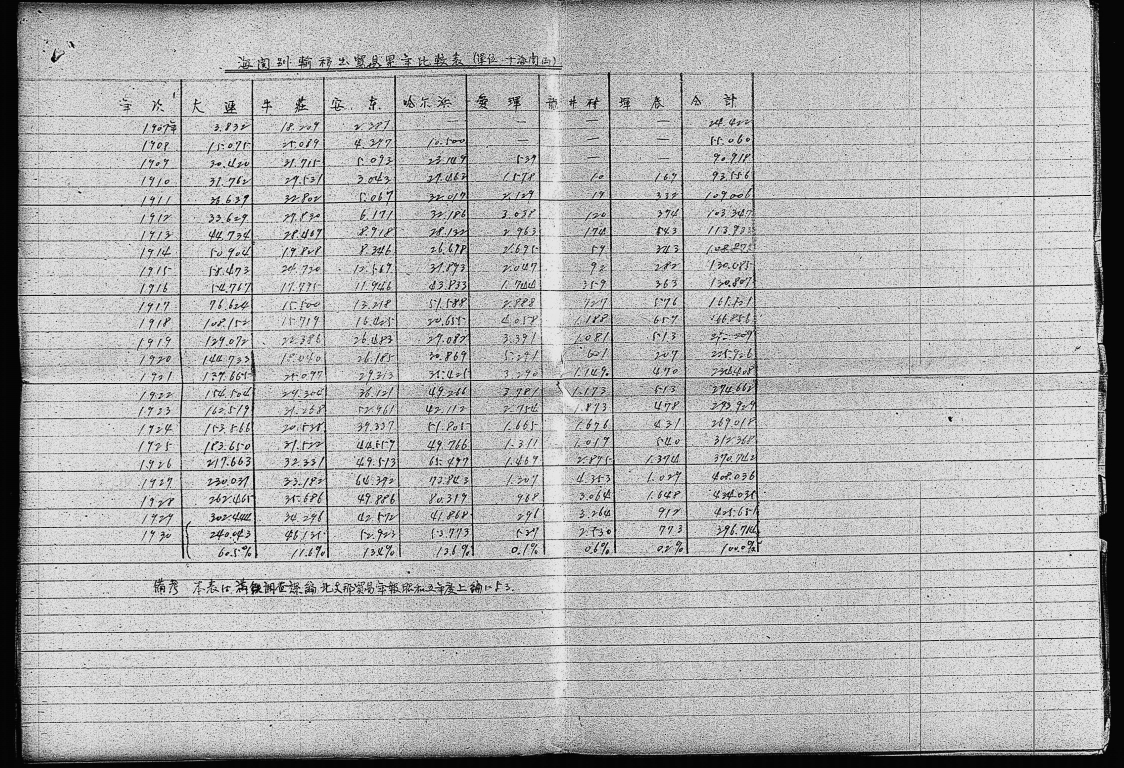 海関別輸移出貿易累年比較表 (單位 千海関両)
年次 大連 牛莊 安東 哈尔浜 愛琿 龍井村 琿春 合計
1907年 3.832 18.209 2.381 — — — — 24.422
1908 15.095 25.089 4.377 10.500 — — — 55.060
1909 30.420 31.715 5.092 23.149 539 — — 90.918
1910 31.762 29.531 3.043 27.462 1.578 10 169 93.556
1911 32.802 5.067 32.019 2.129 19 332 109.006
1912 33.629 27.830 6.171 32.186 3.038 120 374 103.347
1913 44.734 28.467 8.918 28.132 2.963 174 543
1914 50.904 19.828 8.346 26.698 2.695 59 343
1915 58.473 24.720 12.569 31.893 2.047 92 282
1916 54.767 17.795 11.946 43.833 1.744 359 363 130.807
1917 76.624 15.500 13.218 51.588 2.888 727 576 161.121
1918 108.152 15.719 16.425 20.655 4.058 1.188 659 166.856
1919 129.072 22.386 26.483 27.082 3.391 1.081 513
1920 144.733 26.185 30.869 5.291 601 207
1921 139.665 25.097 29.313 35.425 3.290 1.149 470 234.408
1922 154.524 29.304 36.121 49.266 3.781 1.173 513 274.662
1923 162.519 31.258 52.961 42.112 2.754 1.873 478 293.929
1924 153.566 20.528 39.337 51.805 1.665 1.676 431 269.018
1925 183.650 31.522 44.557 49.766 1.311 1.017 540 312.368
1926 217.663 32.331 49.513 65.497 1.469 2.875 1.374 370.742
1927 230.031 33.182 64.392 73.843 1.207 4.353 1.027 408.036
1928 262.465 25.686 49.886 80.319 968 3.064 1.648 424.038
1929 302.444 34.296 42.572 41.868 296 3.264 912 425.651
1930 240.043 46.135 52.923 53.773 537 2.530 773 396.714
60.5% 11.6% 13.4% 13.6% 0.1% 0.6% 0.2% 100.0%
備考 本表は満鉄調査課編北支那貿易年報昭和五年度上編による.